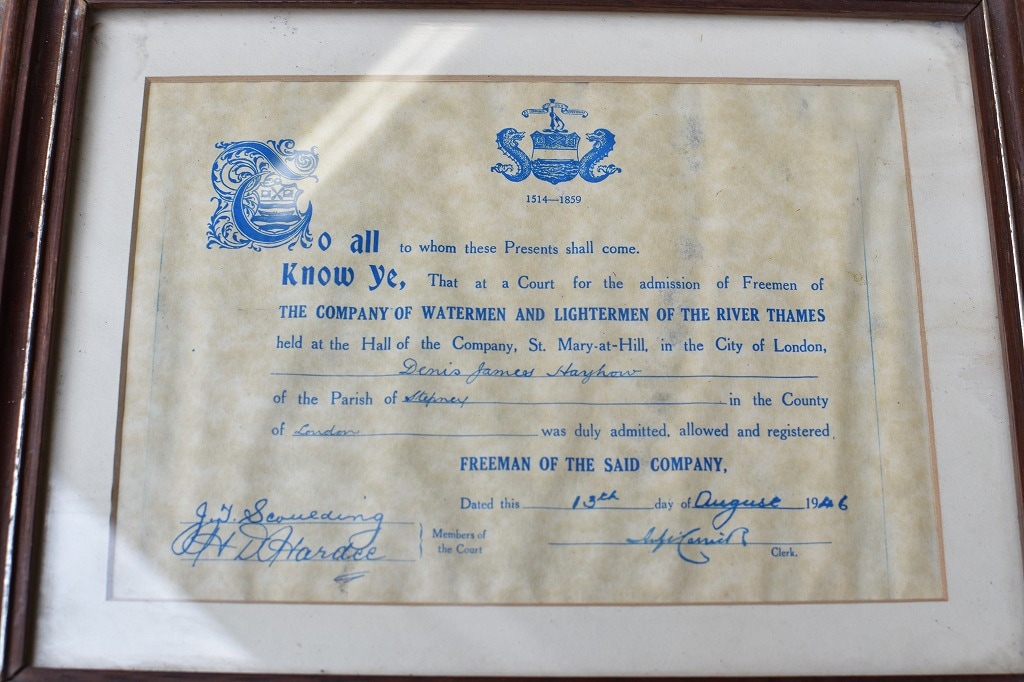 1514—1859
To all to whom these Presents shall come.
Know Ye, That at a Court for the admission of Freemen of
THE COMPANY OF WATERMEN AND LIGHTERMEN OF THE RIVER THAMES
held at the Hall of the Company, St. Mary-at-Hill, in the City of London,
Denis James Hayhow
of the Parish of Stepney in the County
of London was duly admitted, allowed and registered
FREEMAN OF THE SAID COMPANY,
Dated this 13th day of August 1946
J.T. Scoulding
Members of
the Court
Clerk.